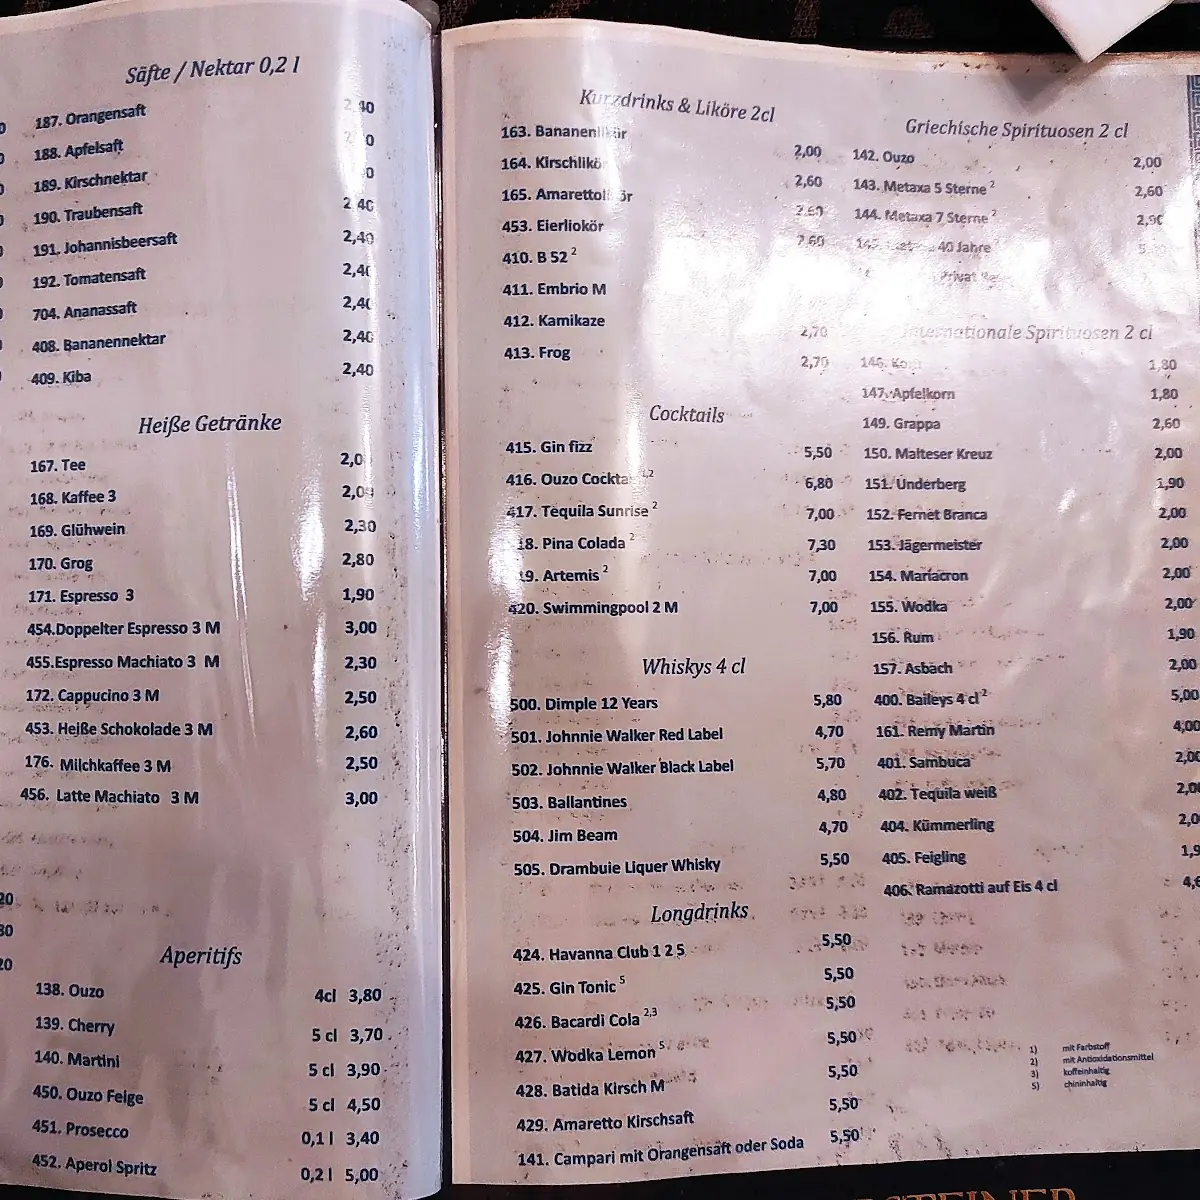 Säfte / Nektar 0,2 l
187. Orangensaft 2,40
188. Apfelsaft
189. Kirschnektar
190. Traubensaft 2,40
191. Johannisbeersaft 2,40
192. Tomatensaft 2,40
704. Ananassaft 2,40
408. Bananennektar 2,40
409. Kiba 2,40
Heiße Getränke
167. Tee 2,0
168. Kaffee 3 2,00
169. Glühwein 2,30
170. Grog 2,80
171. Espresso 3 1,90
454.Doppelter Espresso 3 M 3,00
455.Espresso Machiato 3 M 2,30
172. Cappucino 3 M 2,50
453. Heiße Schokolade 3 M 2,60
176. Milchkaffee 3 M 2,50
456. Latte Machiato 3 M 3,00
Aperitifs
138. Ouzo 4cl 3,80
139. Cherry 5 cl 3,70
140. Martini 5 cl 3,90
450. Ouzo Feige 5 cl 4,50
451. Prosecco 0,1 l 3,40
452. Aperol Spritz 0,2 l 5,00
20
30
20
Kurzdrinks & Liköre 2cl
163. Bananenlikör 2,00
164. Kirschlikör 2,60
165. Amarettolikör 2,60
453. Eierliokör 2,60
410. B 52 2
411. Embrio M
412. Kamikaze 2,70
413. Frog 2,70
Cocktails
415. Gin fizz 5,50
416. Ouzo Cocktail 1,2 6,80
417. Tequila Sunrise 2 7,00
18. Pina Colada 2 7,30
19. Artemis 2 7,00
420. Swimmingpool 2 M 7,00
Whiskys 4 cl
500. Dimple 12 Years 5,80
501. Johnnie Walker Red Label 4,70
502. Johnnie Walker Black Label 5,70
503. Ballantines 4,80
504. Jim Beam 4,70
505. Drambuie Liquer Whisky 5,50
Longdrinks
424. Havanna Club 1 2 5 5,50
425. Gin Tonic 5 5,50
426. Bacardi Cola 2,3 5,50
427. Wodka Lemon 5 5,50
428. Batida Kirsch M 5,50
429. Amaretto Kirschsaft 5,50
141. Campari mit Orangensaft oder Soda 5,50
Griechische Spirituosen 2 cl
142. Ouzo 2,00
143. Metaxa 5 Sterne 2 2,60
144. Metaxa 7 Sterne 2 2,90
40 Jahre
Privat
Internationale Spirituosen 2 cl
146. Korn 1,80
147. Apfelkorn 1,80
149. Grappa 2,60
150. Malteser Kreuz 2,00
151. Underberg 1,90
152. Fernet Branca 2,00
153. Jägermeister 2,00
154. Mariacron 2,00
155. Wodka 2,00
156. Rum 1,90
157. Asbach 2,00
400. Baileys 4 cl 2 5,00
161. Remy Martin 4,00
401. Sambuca 2,00
402. Tequila weiß 2,0
404. Kümmerling 2,0
405. Feigling 1,9
406. Ramazotti auf Eis 4 cl 4,6
1) mit Farbstoff
2) mit Antioxidationsmittel
3) koffeinhaltig
5) chininhaltig